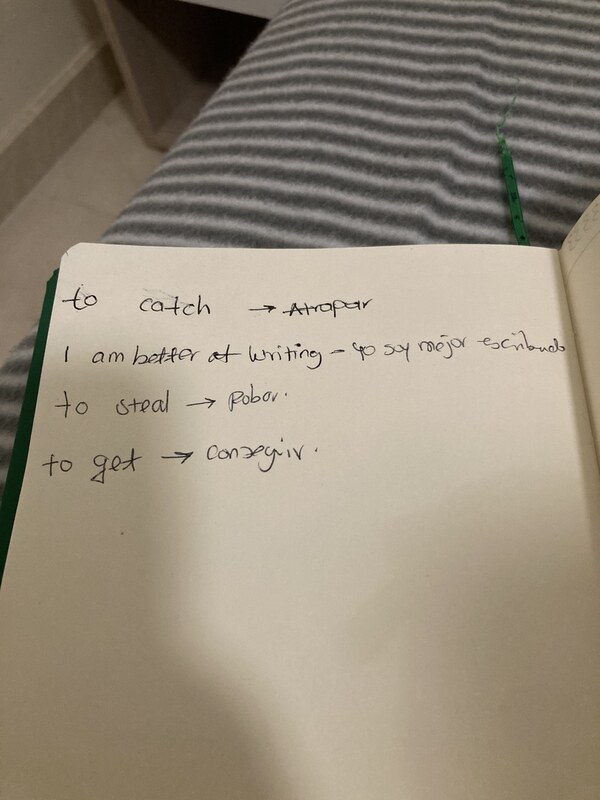 to catch → Atrapar
I am better at writing - yo soy mejor escribiendo
to steal → Robar.
to get → conseguir.